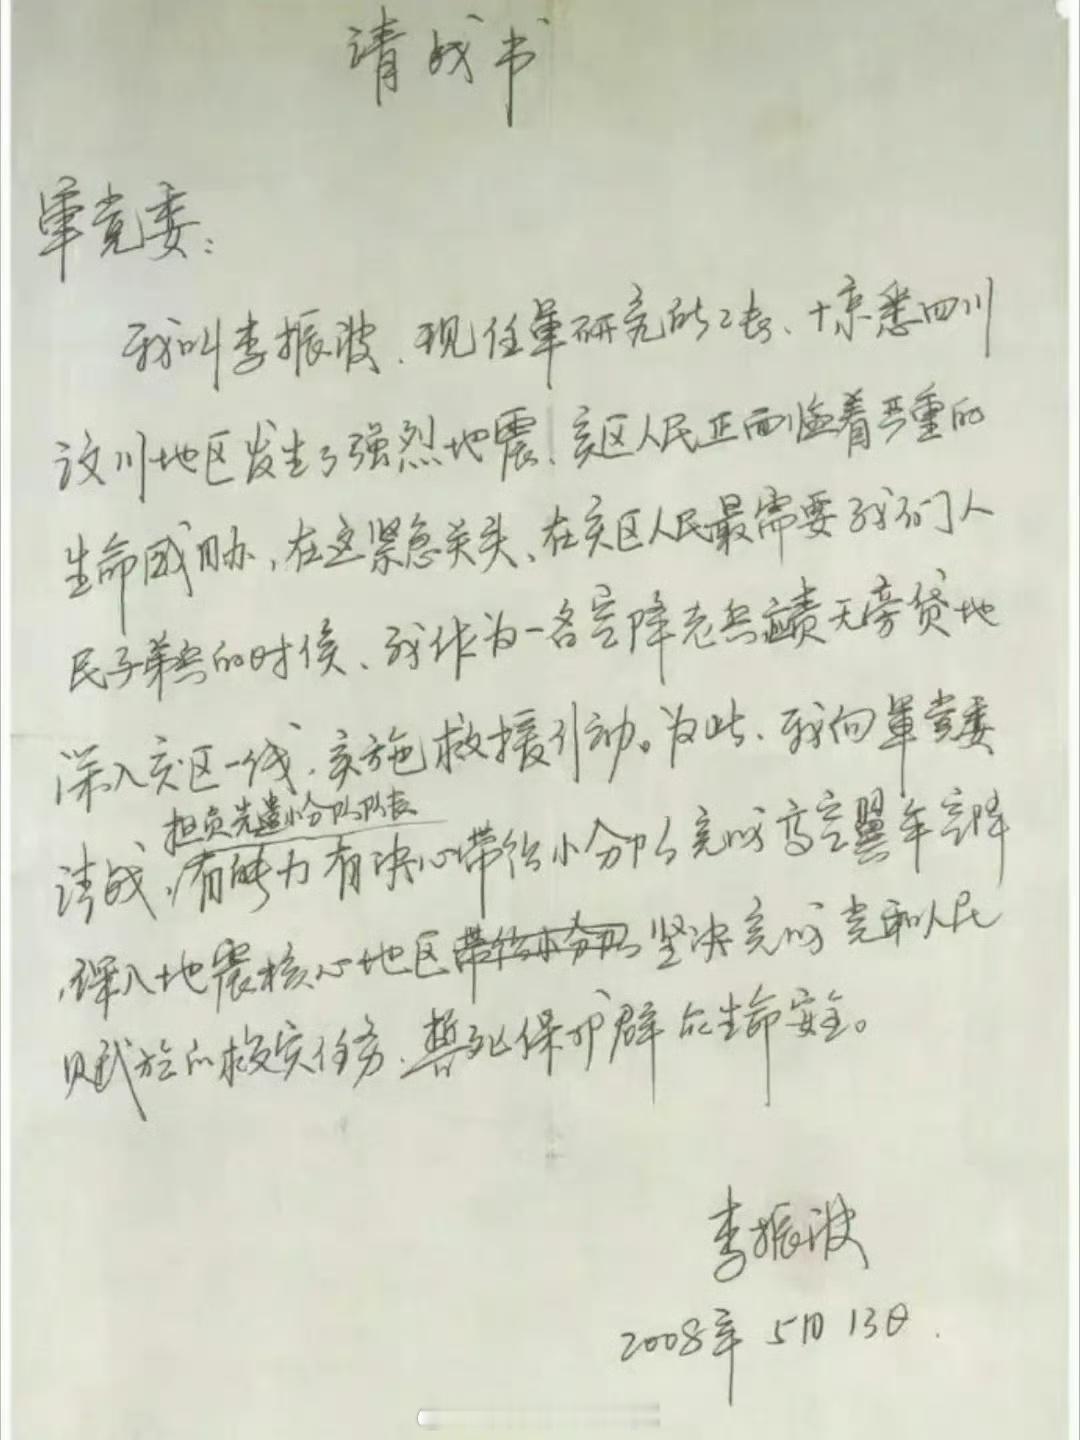 请战书
军党委:
我叫李振波、现任军研究所所长、惊悉四川
汶川地区发生了强烈地震、灾区人民正面临着严重的
生命威胁,在这紧急关头、在灾区人民最需要我们人
民子弟兵的时候、我作为一名空降老兵责无旁贷地
深入灾区一线,实施救援行动。为此、我向军党委
担负先遣小分队队长
请战,有能力有决心带领小分队完成高空翼伞空降
,深入地震核心地区带领小分队坚决完成党和人民
赋于的救灾任务、誓死保护群众生命安全。
李振波
2008年5月13日.